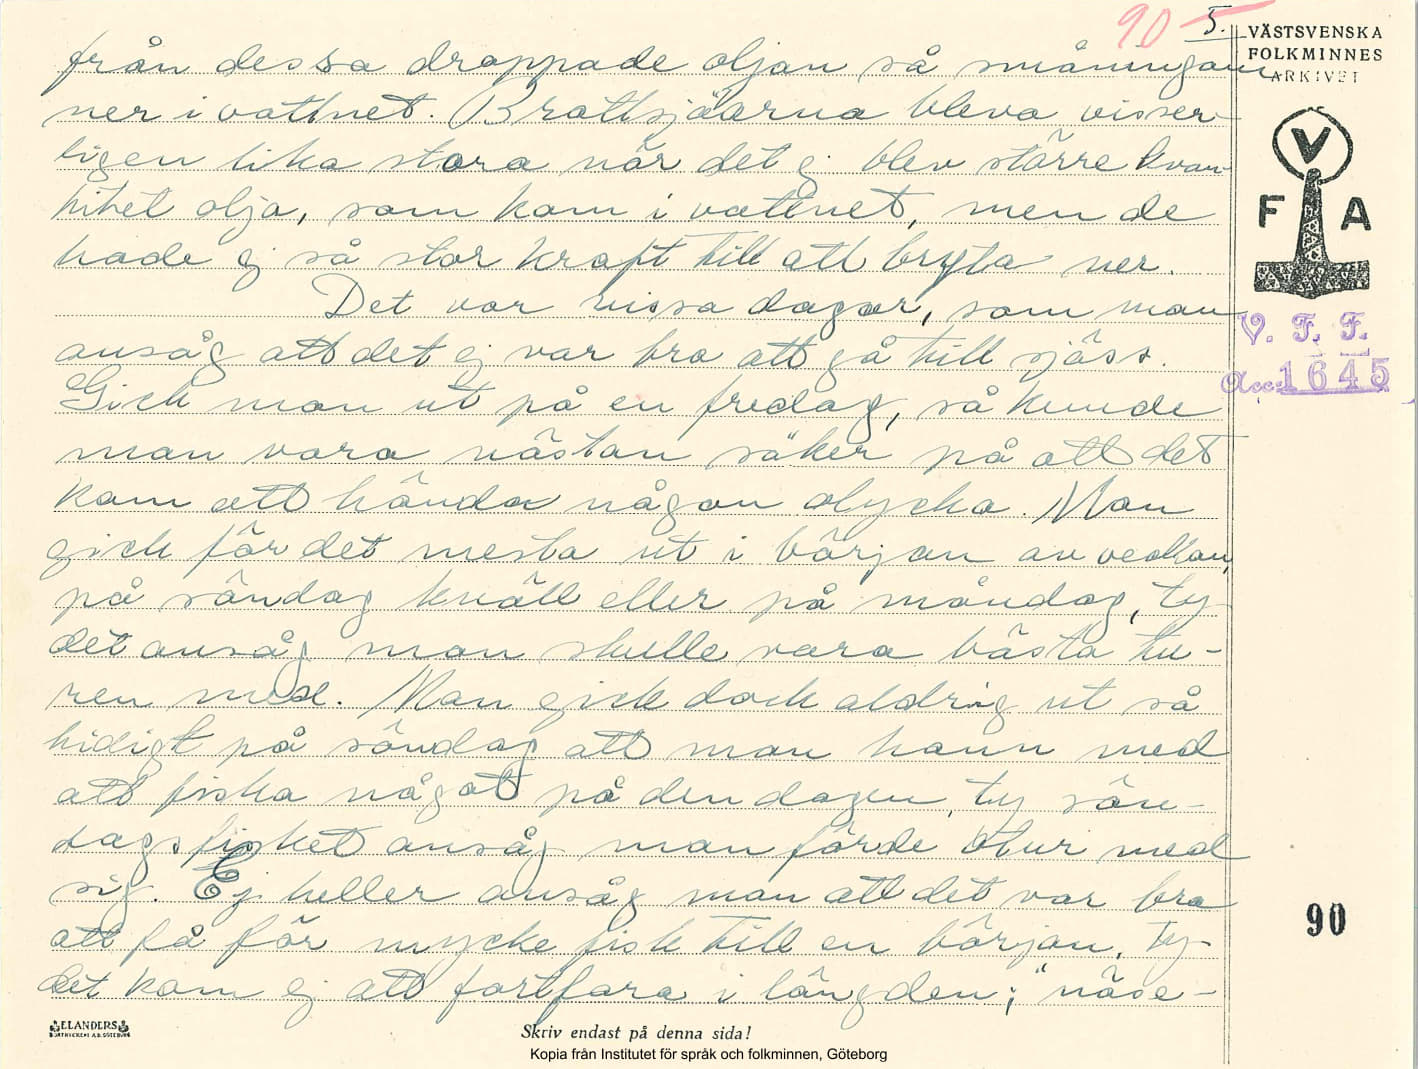 90 5.
VÄSTSVENSKA
FOLKMINNES
ARKIVET
V
F A
V. F. F.
Acc: 1645
från dessa droppade oljan så småningom
ner i vattnet. Brottsjöarna bleva visser-
ligen lika stora när det ej blev större kvan-
titet olja, som kom i vattnet, men de
hade ej så stor kraft till att bryta ner.
Det var vissa dagar, som man
ansåg att det ej var bra att gå till sjöss.
Gick man ut på en fredag, så kunde
man vara nästan säker på att det
kom att hända någon olycka. Man
gick för det mesta ut i början av veckan,
på söndag kväll eller på måndag, ty
det ansåg man skulle vara bästa tu-
ren med. Man gick dock aldrig ut så
tidigt på söndag att man hann med
att fiska något på den dagen, ty sön-
dagsfisket ansåg man förde otur med
sig. Ej heller ansåg man att det var bra
att få för mycke fisk till en början, ty
det kom ej att fortfara i längden; "näse-
90
ELANDERS
BOKTRYCKERI A.B. GÖTEBORG
Skriv endast på denna sida!
Kopia från Institutet för språk och folkminnen, Göteborg